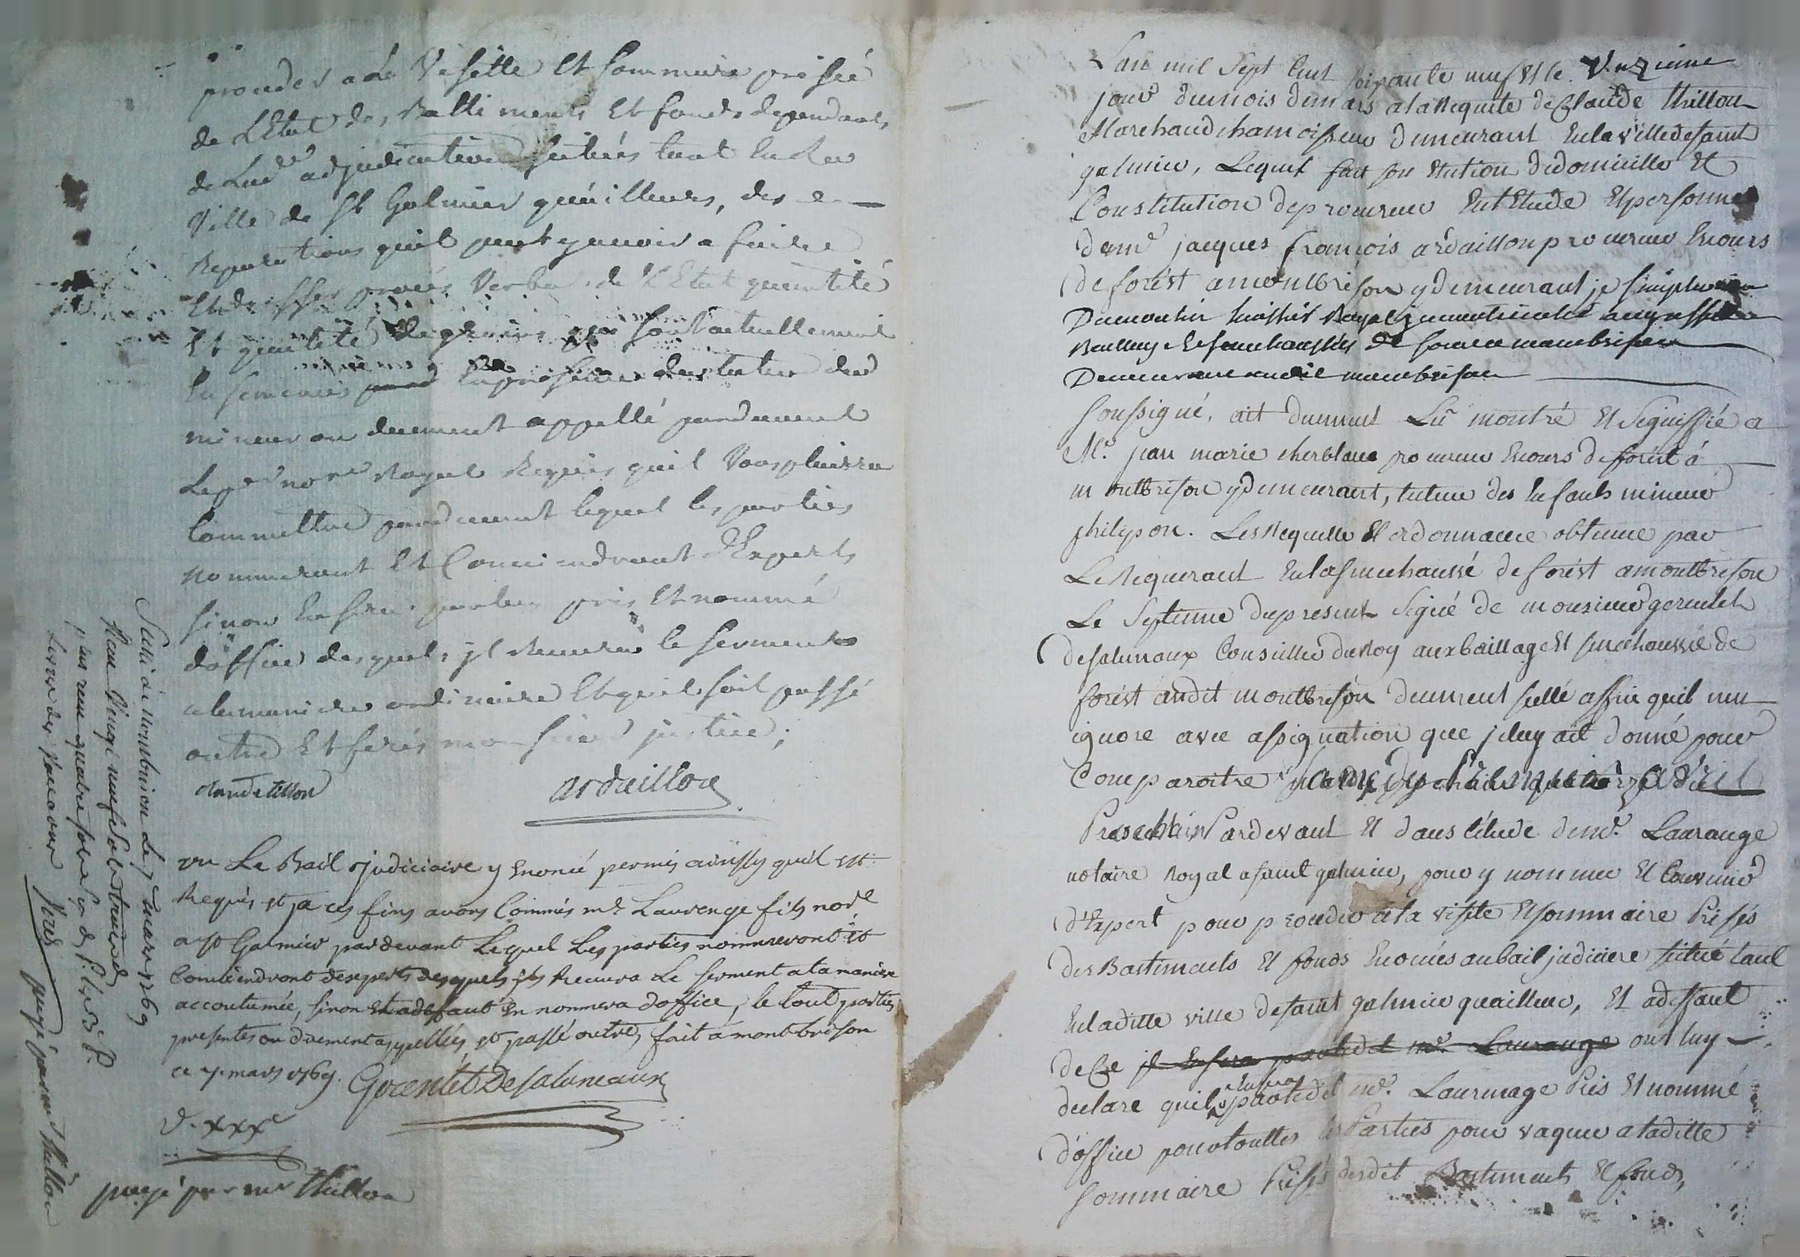 proceder a la Visitte Et sommaire prisée
de L'Etat des Battiments Et fonds dependants
de Lad. adjudication scitués tant En lad.
Ville de St Galmier qu'ailleurs, des
Reparations quil peut y avoir a faire
Et dresser procés Verbal de l'Etat quantité
Et qualité des grains qui sont actuellement
Ensemencés En presence du tuteur desd.
mineurs ou duement appellé pardevant
Le pr. no.re Royal Requis quil Vous plaise
Commettre pardevant lequel les parties
nommeront Et Conviendront d'Experts
sinon En sera par luy pris Et nommé
d'office desquels jl Recevra le serment
a la maniere ordinaire Et quil soit passé
outre Et ferés justice;
claude tillon
ardaillon
vu Le Bail judiciaire y Enoncé permis ainsy quil est
Requis et a ces fins avons Commis me. Laurenge fils no.re
a st Galmier pardevant Lequel Les parties nommeront et
Conviendront d'experts desquels il Recevra Le serment a la maniere
accoutumée, sinon et a defaut En nommera d'office, le tout parties
presentes ou duement appellées et passé outre, fait a montbrison
ce 7. mars 1769. Goentet Desalaneaux
d. xxx
payé par mr thillon
Scellé a montbrison Le 7 mars 1769
Reçu Vingt neuf sols
livres des
payé par mr thillon
L'an mil sept cent soixante neuf et le onzieme
jour du mois de mars a la Requete de Claude thillon
Marchand chamoisseur demeurant En la ville de saint
galmier, Lequel fait son Election de domicille Et
Constitution de procureur En l'Etude Et personne
de me. jacques françois ardaillon procureur Es cours
de forêt a montbrison y demeurant, je
Dumoulin huissier Royal immatriculé au greffe
Bailliage Et senechaussée de forest a montbrison
Demeurant audit montbrison
soussigné, ait duement Lu montré Et signiffié a
Me. jean marie cherblanc procureur Es cours de forêt á
montbrison y demeurant, tuteur des Enfants mineurs
philipon. Les Requette Et ordonnance obtenue par
Le Requerant En la senechaussé de forêt a montbrison
Le Septieme du present signé de monsieur goentet
desalaneaux Conseiller du Roy aux baillage Et senechaussée de
forêt audit montbrison duement scellé affin quil nen
ignore avec assignation que je luy ait donné pour
Comparoitre
Prochain Pardevant Et dans l'étude de me. Laurange
notaire Royal a saint galmier, pour y nommer Et Convenir
d'Expert pour proceder a la visite Et sommaire Prisés
des Bastiments Et fonds Enoncés au bail judiciere situé tant
En la ditte ville de saint galmier qu'ailleur, Et a deffaut
de Ce jl En sera par ledit me. Laurange ont luy
declare quil En sera par ledit me. Laurenage Pris Et nommé
d'office pour touttes les Parties pour vaquer a la ditte
sommaire Prisés desdit Bastiments Et fonds,